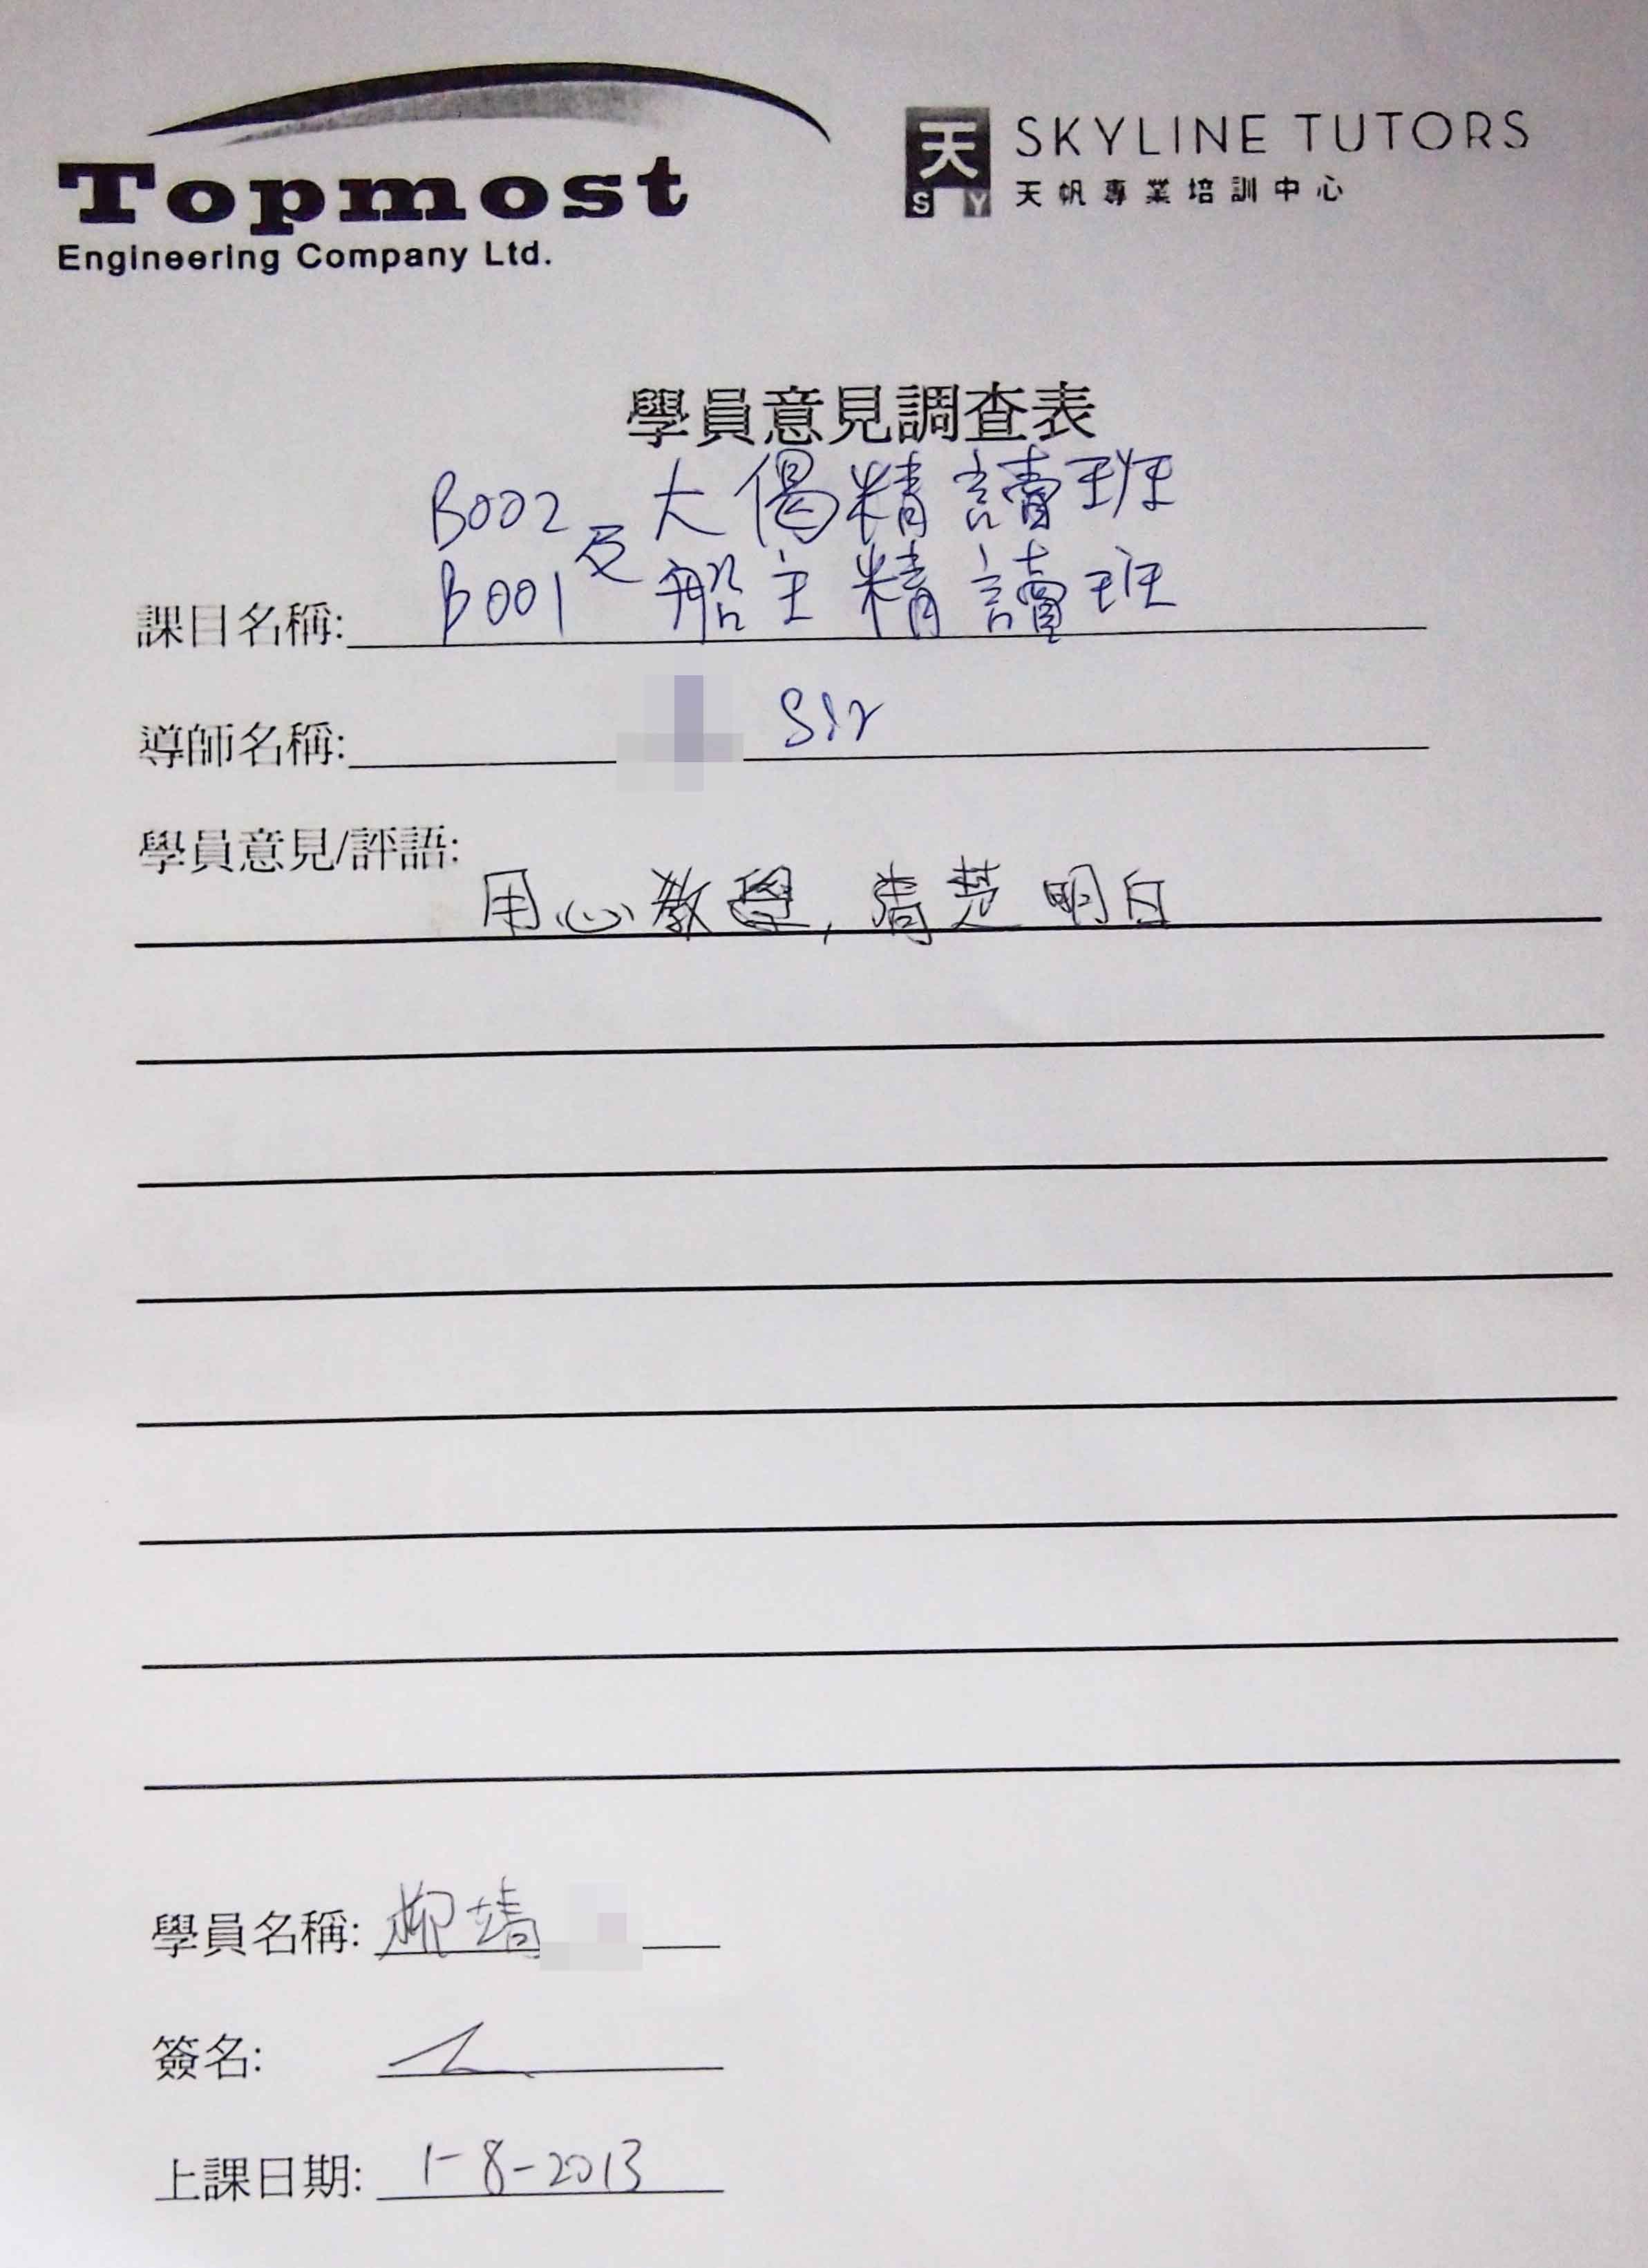 Topmost
Engineering Company Ltd.
天
SY
SKYLINE TUTORS
天帆專業培訓中心
學員意見調查表
B002 大偈精讀班
及
課目名稱: B001 船主精讀班
導師名稱: Sir
學員意見/評語:
用心教學, 清楚明白
學員名稱: 柳靖
簽名:
上課日期: 1-8-2013